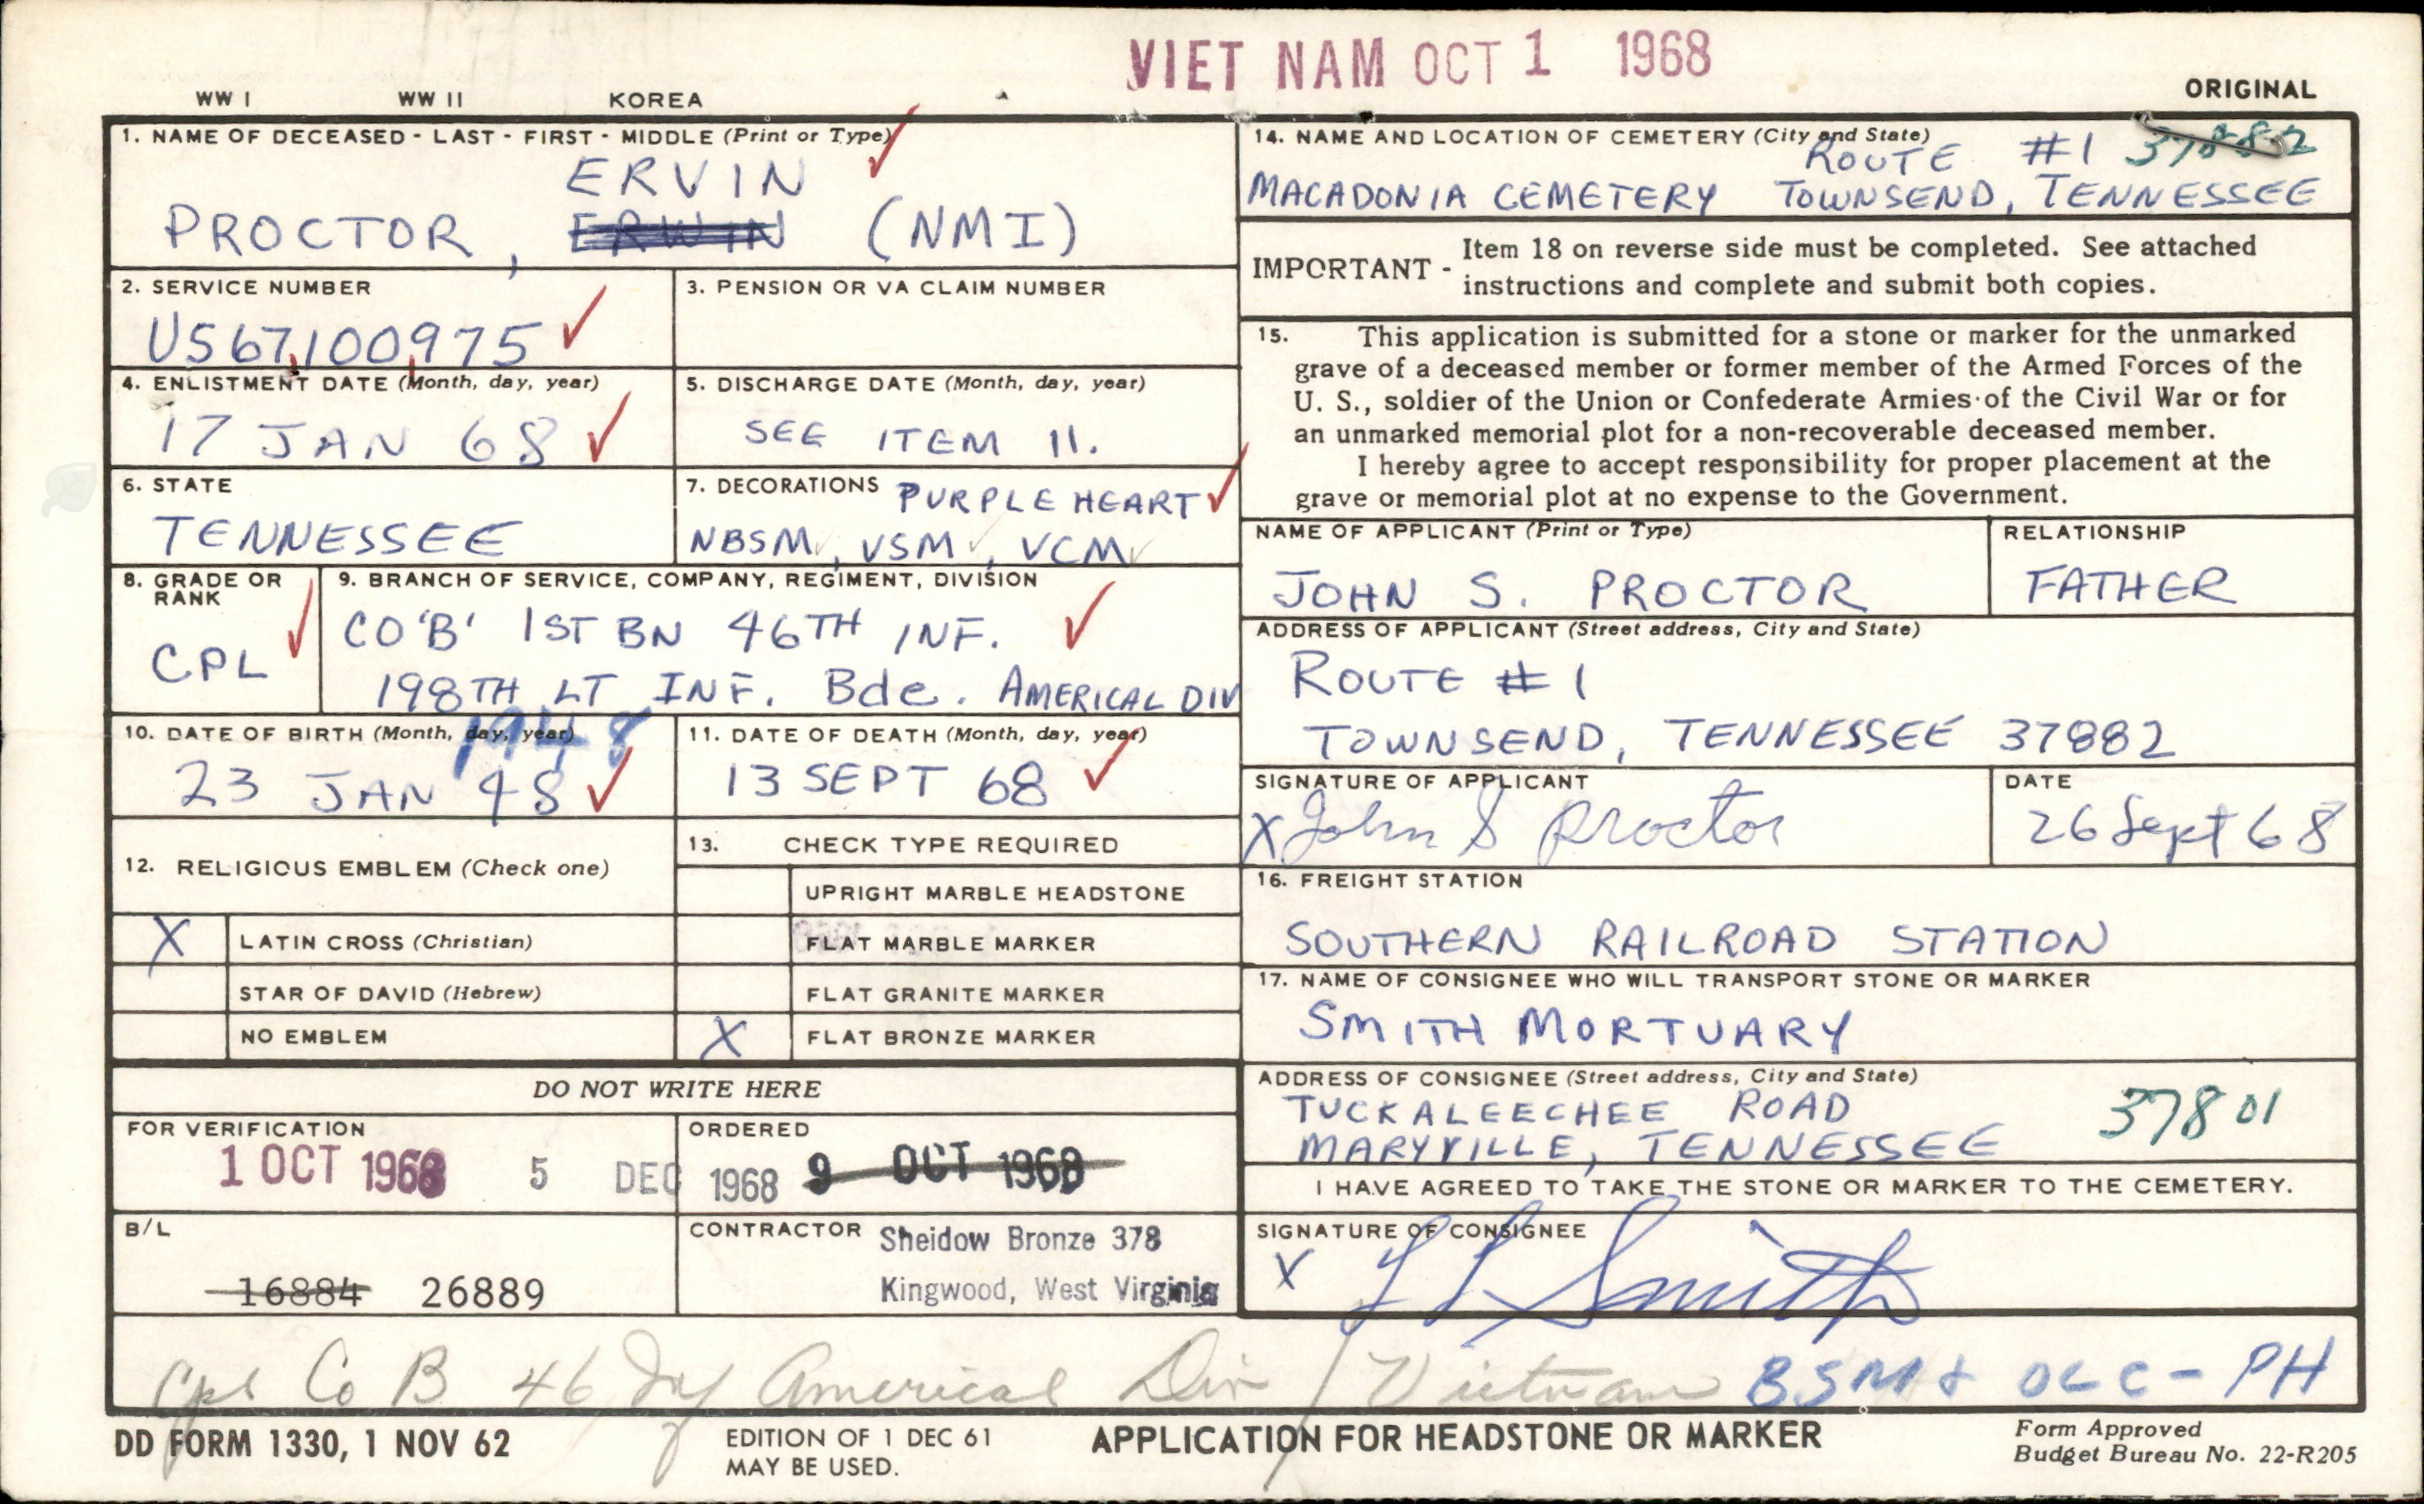 VIET NAM OCT 1 1968
WW I WW II KOREA
ORIGINAL
1. NAME OF DECEASED - LAST - FIRST - MIDDLE (Print or Type)
ERVIN
PROCTOR, ERWIN (NMI)
2. SERVICE NUMBER
US67100975
3. PENSION OR VA CLAIM NUMBER
4. ENLISTMENT DATE (Month, day, year)
17 JAN 68
5. DISCHARGE DATE (Month, day, year)
SEE ITEM 11.
6. STATE
TENNESSEE
7. DECORATIONS PURPLE HEART
NBSM, VSM, VCM
8. GRADE OR RANK
CPL
9. BRANCH OF SERVICE, COMPANY, REGIMENT, DIVISION
CO 'B' 1ST BN 46TH INF.
198TH LT INF. Bde. AMERICAL DIV
10. DATE OF BIRTH (Month, day, year)
1948
23 JAN 48
11. DATE OF DEATH (Month, day, year)
13 SEPT 68
12. RELIGIOUS EMBLEM (Check one)
X LATIN CROSS (Christian)
STAR OF DAVID (Hebrew)
NO EMBLEM
13. CHECK TYPE REQUIRED
UPRIGHT MARBLE HEADSTONE
FLAT MARBLE MARKER
FLAT GRANITE MARKER
X FLAT BRONZE MARKER
DO NOT WRITE HERE
FOR VERIFICATION
1 OCT 1968 5 DEC 1968
ORDERED
9 OCT 1968
B/L
16884 26889
CONTRACTOR Sheidow Bronze 378
Kingwood, West Virginia
14. NAME AND LOCATION OF CEMETERY (City and State)
ROUTE #1 37882
MACADONIA CEMETERY TOWNSEND, TENNESSEE
IMPORTANT - Item 18 on reverse side must be completed. See attached
instructions and complete and submit both copies.
15. This application is submitted for a stone or marker for the unmarked
grave of a deceased member or former member of the Armed Forces of the
U. S., soldier of the Union or Confederate Armies of the Civil War or for
an unmarked memorial plot for a non-recoverable deceased member.
I hereby agree to accept responsibility for proper placement at the
grave or memorial plot at no expense to the Government.
NAME OF APPLICANT (Print or Type)
JOHN S. PROCTOR
RELATIONSHIP
FATHER
ADDRESS OF APPLICANT (Street address, City and State)
ROUTE # 1
TOWNSEND, TENNESSEE 37882
SIGNATURE OF APPLICANT
X John S Proctor
DATE
26 Sept 68
16. FREIGHT STATION
SOUTHERN RAILROAD STATION
17. NAME OF CONSIGNEE WHO WILL TRANSPORT STONE OR MARKER
SMITH MORTUARY
ADDRESS OF CONSIGNEE (Street address, City and State)
TUCKALEECHEE ROAD
MARYVILLE, TENNESSEE 37801
I HAVE AGREED TO TAKE THE STONE OR MARKER TO THE CEMETERY.
SIGNATURE OF CONSIGNEE
X Smith
Cpl Co B 46 Inf Americal Div / Vietnam BSM & OLC - PH
DD FORM 1330, 1 NOV 62
EDITION OF 1 DEC 61
MAY BE USED.
APPLICATION FOR HEADSTONE OR MARKER
Form Approved
Budget Bureau No. 22-R205